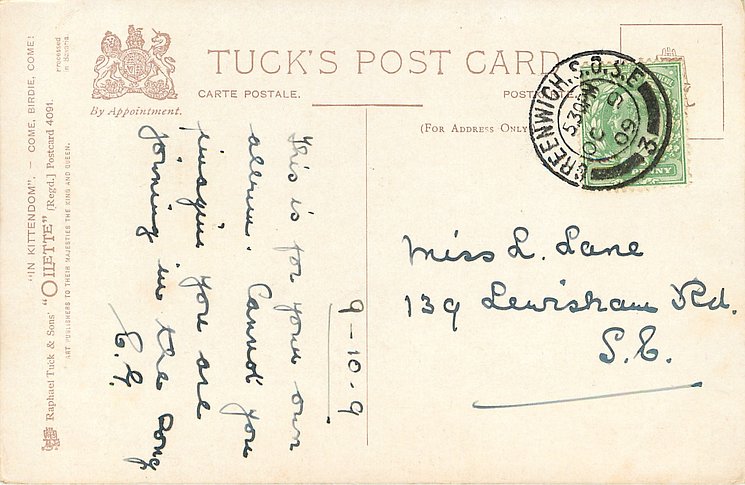 TUCK'S POST CARD
CARTE POSTALE.
By Appointment.
(For Address Only
"IN KITTENDOM". — COME, BIRDIE, COME!
Raphael Tuck & Sons' "OILETTE" [Regd.] Postcard 4091.
ART PUBLISHERS TO THEIR MAJESTIES THE KING AND QUEEN.
Processed
in Bavaria.
This is for your own
album. Cannot you
imagine you are
joining in the song
9-10-9
GREENWICH.S.O.S.E
5 30PM
OC 9
09
3
Miss L. Lane
139 Lewisham Rd.
S.E.